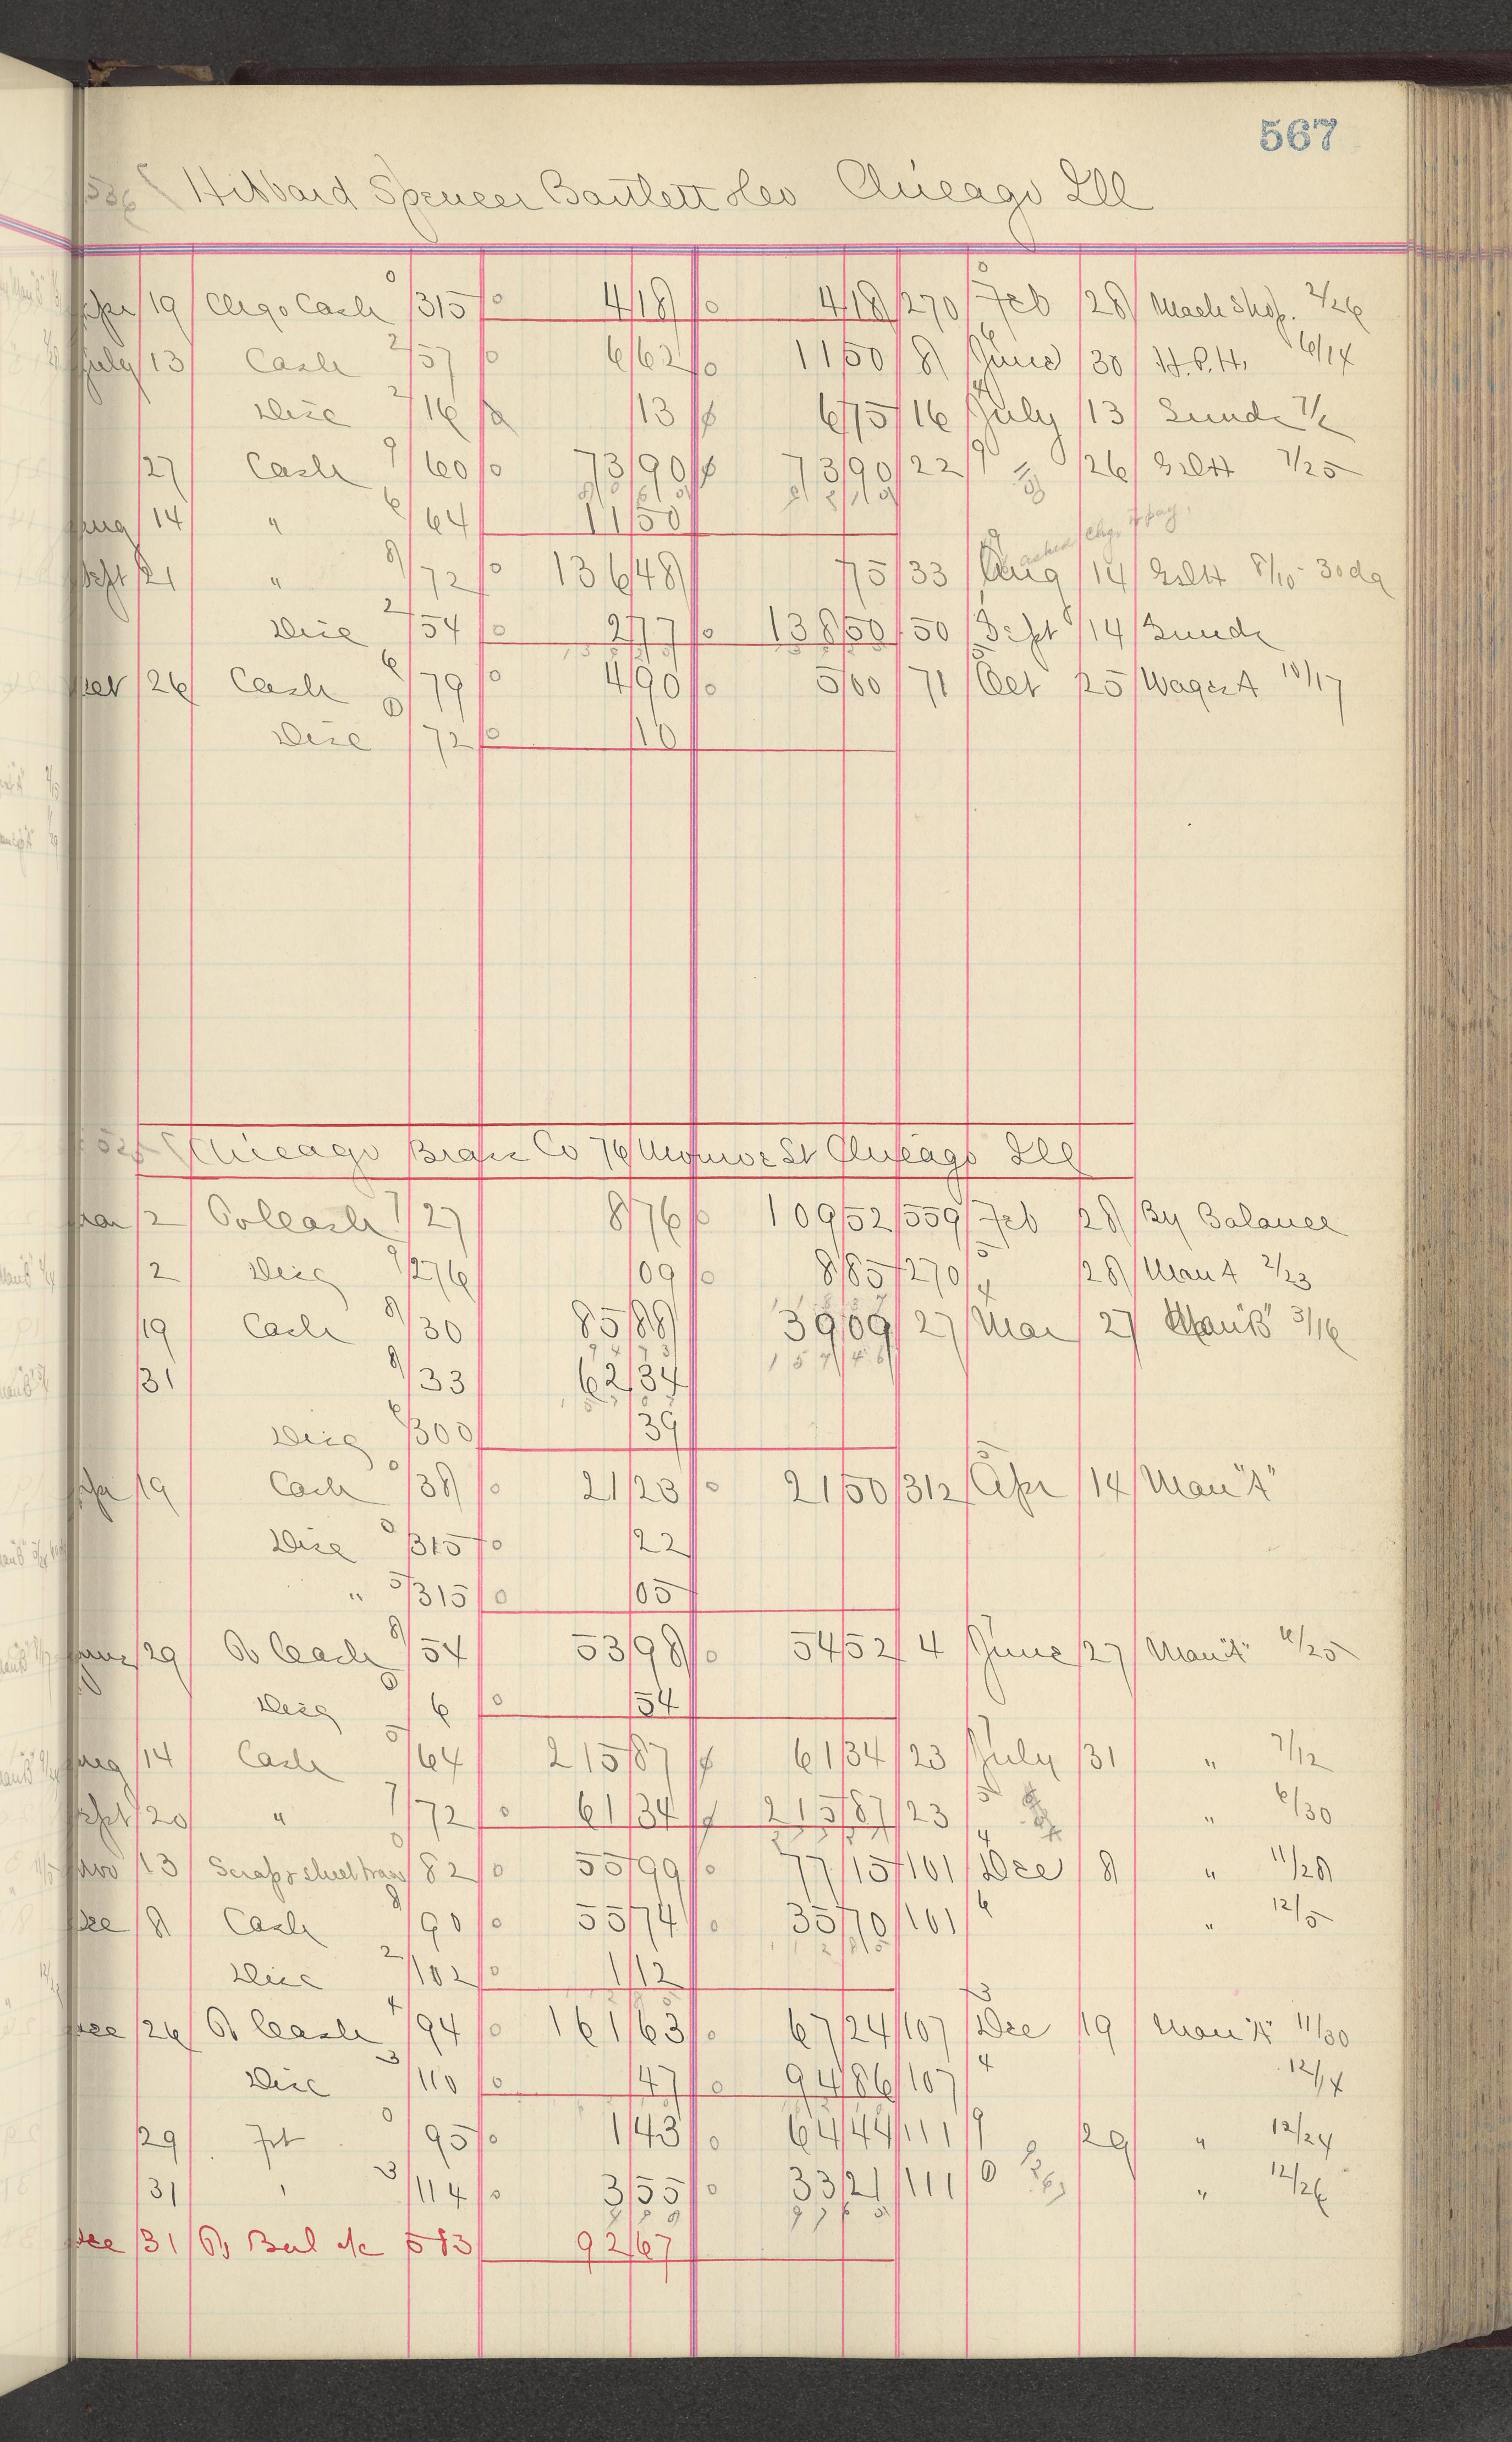 567
Hibbard Spencer Bartlett &Co Chicago Ill
Apr 19 Chgo Cash 0/315 4 18 4 18 270 Feb 28 Mach Shop. 2/26
July 13 Cash 2/57 6 62 11 50 8 June 30 H.P.H. 6/14
Disc 2/16 13 6 75 16 July 13 Sunds 7/2
27 Cash 9/60 73 90 73 90 22 9 26 7/25
Aug 14 " 6/64 11 50
Sept 21 " 8/72 136 48 75 33 Aug 14 8/10 - 30da
Disc 2/54 2 77 138 50 50 Sept 14 Sunds
Oct 26 Cash 6/79 4 90 5 00 71 Oct 25 Wages A 10/17
Disc 0/72 10
Chicago Brass Co 76 Monroe St Chicago Ill
Mar 2 To Cash 7/27 8 76 109 52 559 Feb 28 By Balance
2 Disc 9/276 09 8 85 270 28 Man A 2/23
19 Cash 8/30 85 88 39 09 27 Mar 27 Man "B" 3/16
31 8/33 62 34
Disc 6/300 39
Apr 19 Cash 0/38 21 23 21 50 312 Apr 14 Man "A"
Disc 0/315 22
" 5/315 05
June 29 To Cash 8/54 53 98 54 52 4 June 27 Man "A" 6/25
Disc 0/6 54
Aug 14 Cash 5/64 215 87 61 34 23 July 31 " 7/12
Sept 20 " 7/72 61 34 215 87 23 5 " 6/30
Nov 13 Scrap sheet brass 0/82 55 99 77 15 101 Dec 8 " 11/28
Dec 8 Cash 8/90 55 74 35 70 101 6 " 12/5
Disc 2/102 1 12
Dec 26 To Cash 4/94 161 63 67 24 107 Dec 19 Man "A" 11/30
Disc 3/110 47 94 86 107 4 12/14
29 Frt 0/95 1 43 64 44 111 9 29 " 12/24
31 ' 3/114 3 55 33 21 111 0 " 12/26
Dec 31 To Bal a/c 583 92 67